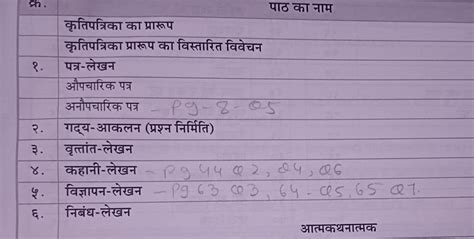 क्र. पाठ का नाम
कृतिपत्रिका का प्रारूप
कृतिपत्रिका प्रारूप का विस्तारित विवेचन
१. पत्र-लेखन
औपचारिक पत्र
अनौपचारिक पत्र - Pg - 8 - Q5
२. गद्य-आकलन (प्रश्न निर्मिति)
३. वृत्तांत-लेखन
४. कहानी-लेखन - Pg 44 Q2, Q4, Q6
५. विज्ञापन-लेखन - Pg 63 Q3, 64 - Q5, 65 Q7.
६. निबंध-लेखन
आत्मकथनात्मक